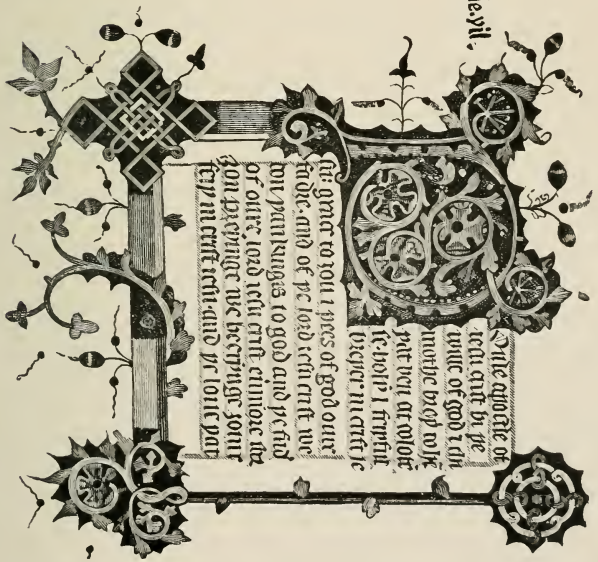 Oule apostle of
iecu. crist by þe
wille of god ⁊ thi
mothe broþ to he
þat ben at colose
holy ⁊ feiþful
breþer in crist ie
su: grace to you ⁊ pees of god oure
fader. and of þe lord iesu crist we
don þankynges to god and þe fad
of oure lord iesu crist euimore for
you preynge we heerynge your
feyþ in crist iesu and þe loue þat
ne.yil.